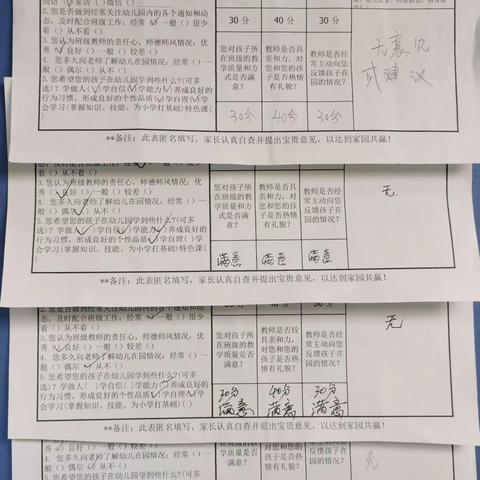 面访( )家访( )微信( )
2.您是否做到经常关注幼儿园内的各个通知和动态,及时配合班级工作:经常( )一般( )很少看( )从不看( )
3.您认为班级教师的责任心,师德师风情况:优秀( )良好( )一般( )较差( )
4.您多久向老师了解幼儿在园情况:经常( )一般( )偶尔( )从不( )
5.您希望您的孩子在幼儿园学到些什么?(可多选)?学做人( )学自信( )学能力( )养成良好的行为习惯,形成良好的个性品质( )学自理( )学会学习(掌握知识、技能、为小学打基础)特色课( )
30分 40分 30分
您对孩子所在班级的教学质量和方式是否满意?
教师是否具亲和力,对您和您的孩子是否热情有礼貌?
教师是否经常主动向您反馈孩子在园的情况?
30分 40分 30分
无意见
或建议
**备注:此表匿名填写,家长认真自查并提出宝贵意见,以达到家园共赢!
3.您认为班级教师的责任心,师德师风情况:优秀( )良好( )一般( )较差( )
4.您多久向老师了解幼儿在园情况:经常( )一般( )偶尔( )从不( )
5.您希望您的孩子在幼儿园学到些什么?(可多选)?学做人( )学自信( )学能力( )养成良好的行为习惯,形成良好的个性品质( )学自理( )学会学习(掌握知识、技能、为小学打基础)特色课( )
您对孩子所在班级的教学质量和方式是否满意?
教师是否具亲和力,对您和您的孩子是否热情有礼貌?
教师是否经常主动向您反馈孩子在园的情况?
满意 满意 满意
无.
**备注:此表匿名填写,家长认真自查并提出宝贵意见,以达到家园共赢!
2.您是否做到经常关注幼儿园内的各个通知和动态,及时配合班级工作:经常( )一般( )很少看( )从不看( )
3.您认为班级教师的责任心,师德师风情况:优秀( )良好( )一般( )较差( )
4.您多久向老师了解幼儿在园情况:经常( )一般( )偶尔( )从不( )
5.您希望您的孩子在幼儿园学到些什么?(可多选)?学做人( )学自信( )学能力( )养成良好的行为习惯,形成良好的个性品质( )学自理( )学会学习(掌握知识、技能、为小学打基础)( )
30分 40分 30分
您对孩子所在班级的教学质量是否满意?
教师是否具亲和力,对您和您的孩子是否有礼貌?
教师是否经常主动向您反馈孩子在园的情况?
30分 40分 30分
满意 满意 满意
无
**备注:此表匿名填写,家长认真自查并提出宝贵意见,以达到家园共赢!
秀( )良好( )一般( )较差( )
4.您多久向老师了解幼儿在园情况:经常( )一般( )偶尔( )从不( )
5.您希望您的孩子在幼儿园学到些什么?(可多
无